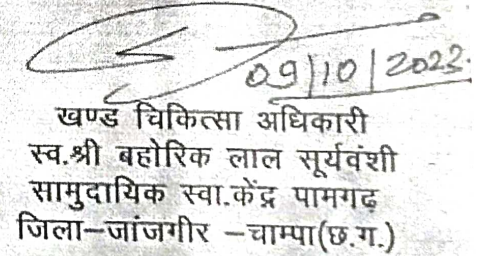 09/10/2023
खण्ड चिकित्सा अधिकारी
स्व.श्री बहोरिक लाल सूर्यवंशी
सामुदायिक स्वा.केंद्र पामगढ़
जिला-जांजगीर -चाम्पा(छ.ग.)